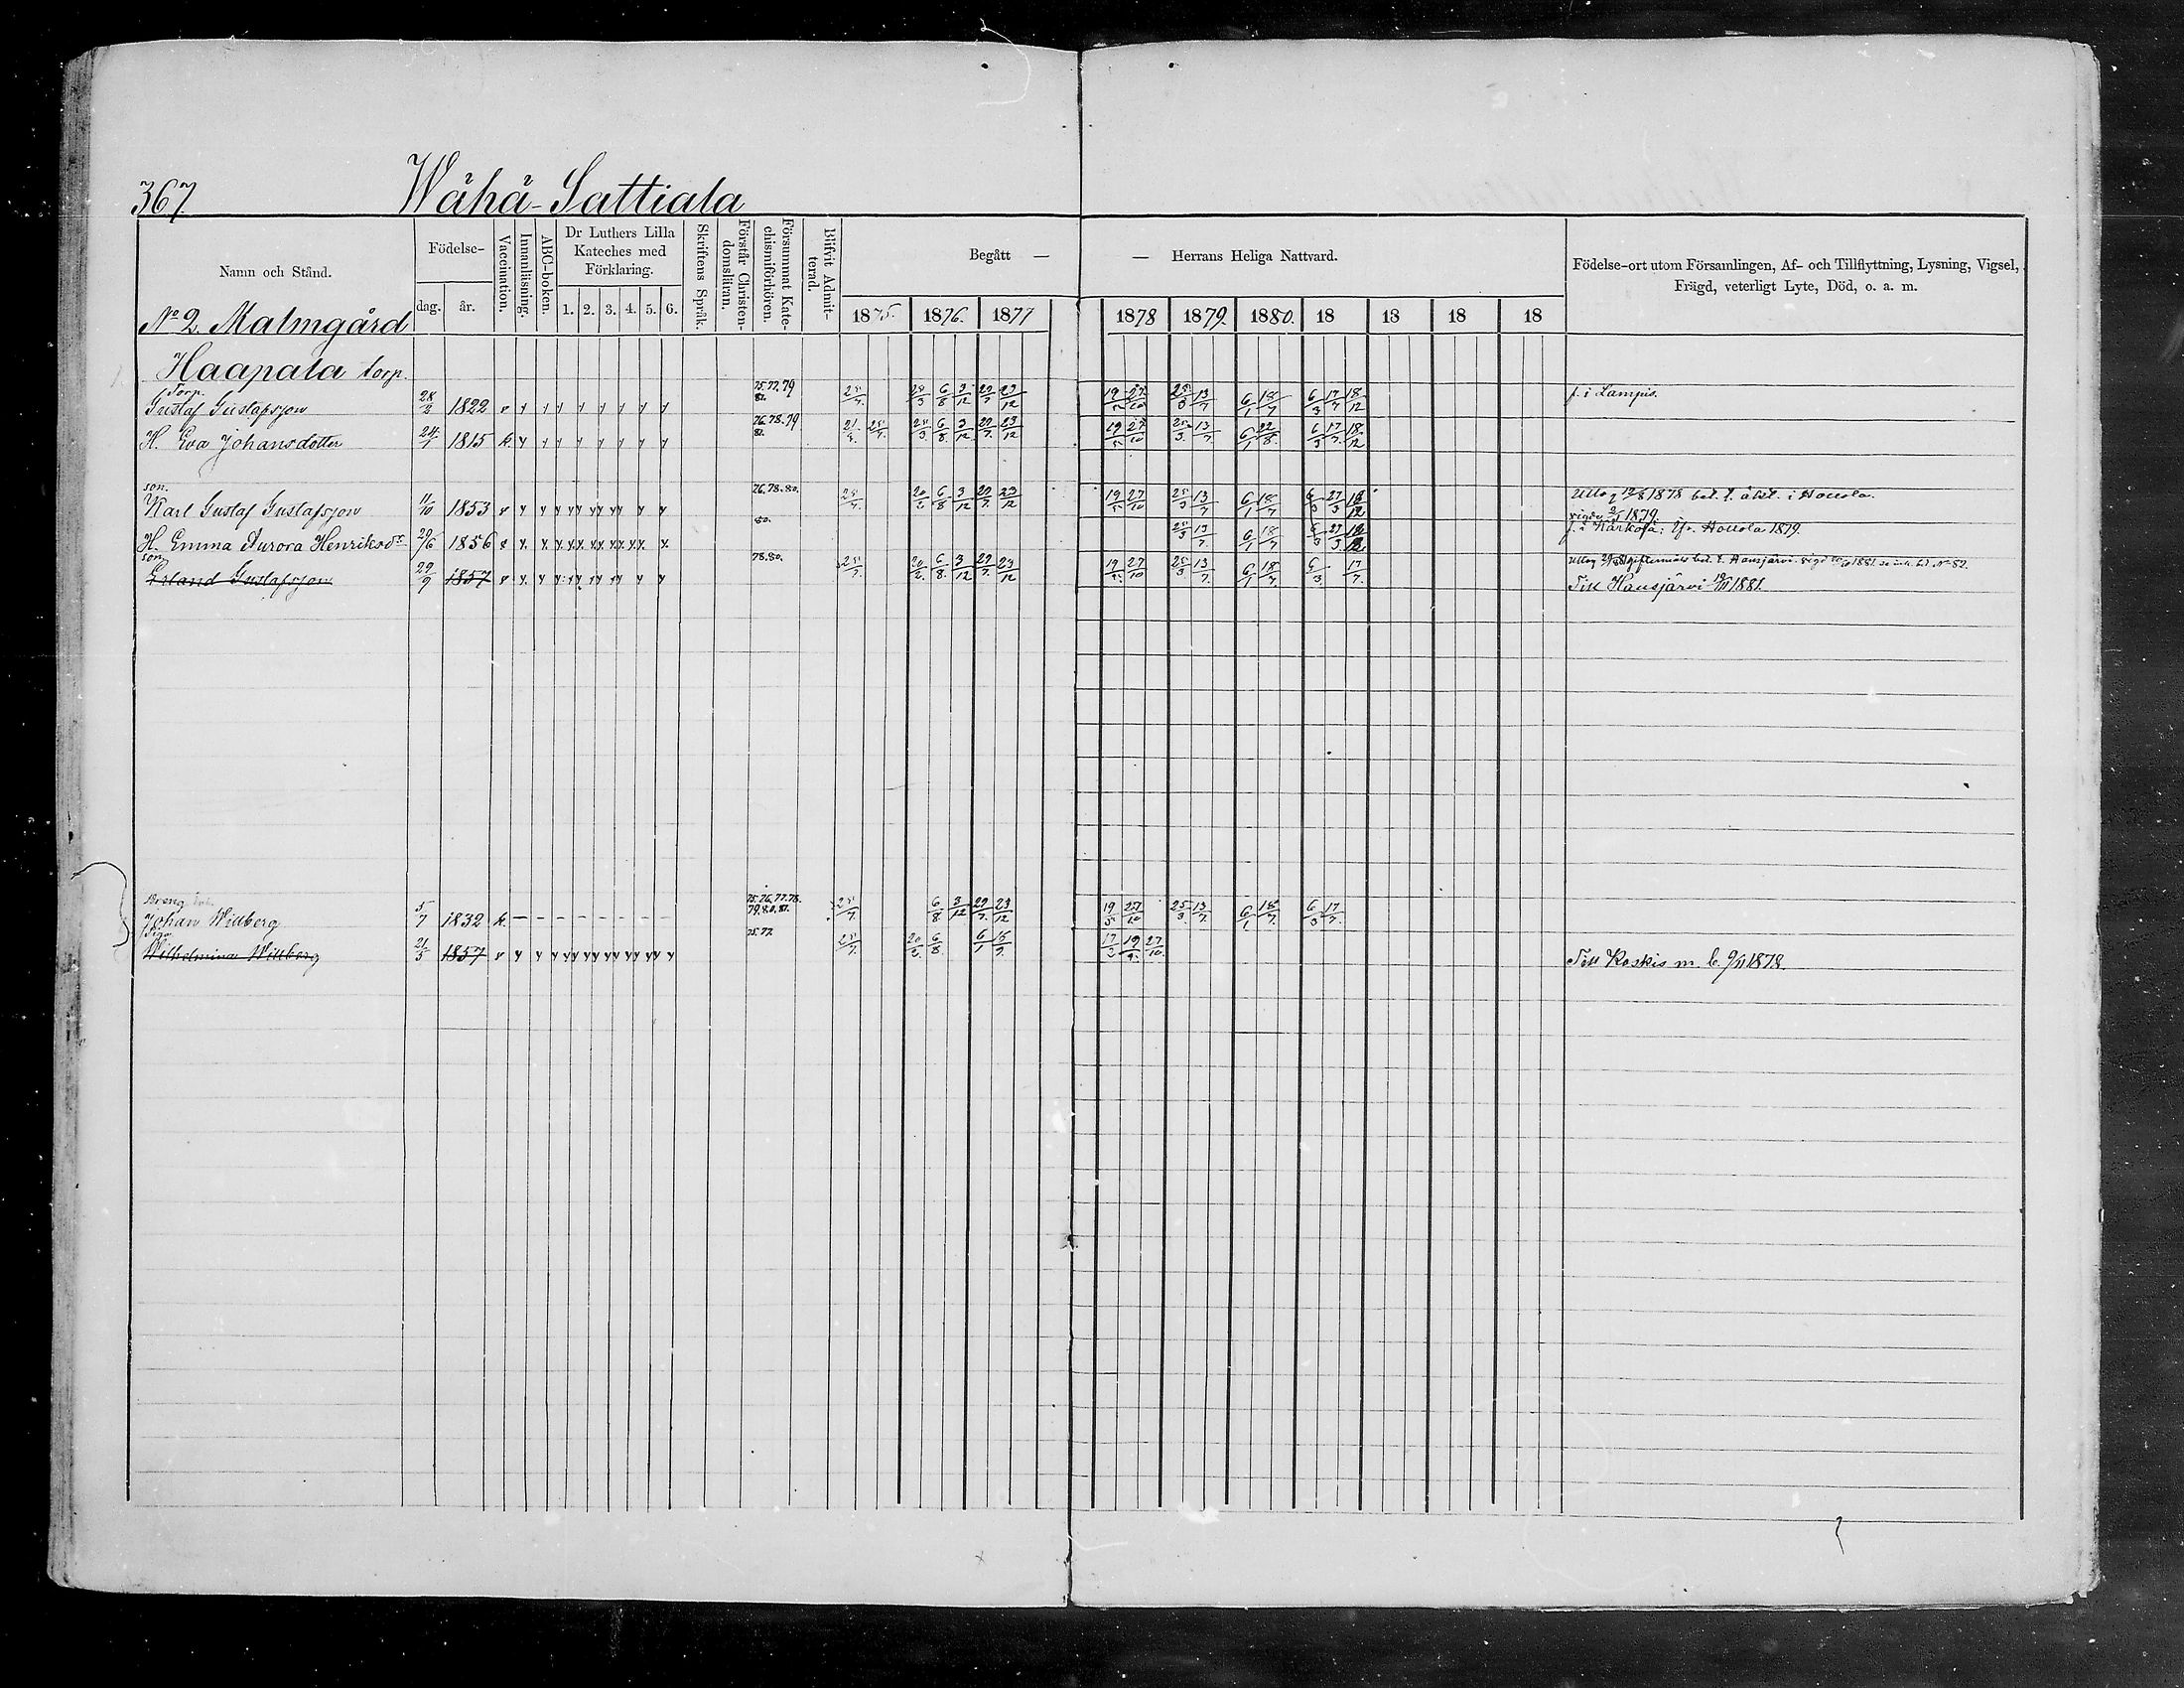 367. Wähä-Sattiala
Namn och Stånd.
Födelse-
dag. år.
Vaccination.
Innanläsning.
ABC-boken.
Dr Luthers Lilla
Kateches med
Förklaring.
1. 2. 3. 4. 5. 6.
Skriftens Språk.
Förstår Christen-
domsläran.
Försummat Kate-
chismiförhören.
Blifvit Admit-
terad.
Begått — — Herrans Heliga Nattvard.
1875. 1876. 1877 1878 1879. 1880. 18 18 18 18
Födelse-ort utom Församlingen, Af- och Tillflyttning, Lysning, Vigsel,
Frägd, veterligt Lyte, Död, o. a. m.
No 2 Malmgård
Haapala torp.
Torp.
Gustaf Gustafsson 28/2 1822 v y y y y y y y y 75.77.79 81. 25/7. 25/3 6/8 3/12 29/7 23/12 19/5 27/10 25/3 13/7 6/1 18/7 6/3 17/7 18/12 f. i Lampis.
H. Eva Johansdotter 24/1 1815 k y y y y y y y y 76.78.79 81. 25/7. 25/3 6/8 3/12 29/7. 23/12 19/5 27/10 25/3 13/7. 6/1 22/8. 6/3 17/7. 18/12
son.
Karl Gustaf Gustafsson 11/10 1853 v y y y yy yy yy y y 76.78.80. 25/7. 20/2 6/8 3/12 29/7. 23/12 19/5 27/10 25/3 13/7 6/1 18/7 6/3 27/3 18/12 1878 bet. t. äkt. i Hollola.
vigde 1879.
H. Emma Aurora Henriksdr 29/6 1856 80. 25/3 13/7. 6/1 18/7 6/3 27/3 18/12 f. i Kärkölä: Hollola 1879.
son
Erland Gustafsson 29/9 1857 v y. y y 78.80. 25/7. 20/2 6/8. 3/12 29/7. 23/12 19/5 27/10 25/3 13/7. 6/1 18/7. 6/3. 17/7. giftermåls bet. t. Hausjärvi. 1881.
Till Hausjärvi 1881.
Dreng
Johan Widberg 5/7 1832 k. — — — — — — — — 75.76.77.78. 79.80.81. 25/7. 6/8. 3/12 29/7. 23/12 19/5 27/10 25/3. 13/7. 6/1 18/7. 6/3 17/7.
Piga
Wilhelmina Widberg 21/5 1857 v y y y yy yy yy yy yy y 75.77. 25/7. 20/2. 6/8. 6/1 17/2 19/5. 27/10. Till Koskis m. b. 9/11 1878.